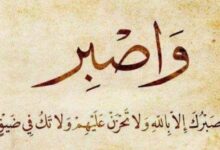 وَاصْبِر
صَبْرُكَ إِلاَّ بِاللَّهِ وَلاَ تَحْزَنْ عَلَيْهِمْ وَلاَ تَكُ فِي ضَيْقٍ